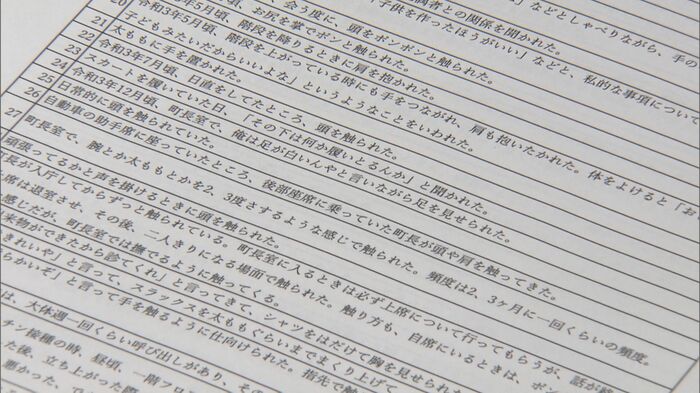 」などとしゃべりながら、手の
関係を聞かれた。
子供を作ったほうがいい」などと、私的な事項について
会う度に、頭をポンポンと触られた。
5月頃、お尻を掌でポンと触られた。
20 令和3年5月頃、階段を降りるときに肩を抱かれた。
21 令和3年5月頃、階段を上がっている時にも手をつながれ、肩も抱いたかれた。体をよけると「お
子どもみたいだからいいよな」というようなことをいわれた。
22 太ももに手を置かれた。
23 スカートを履いていた日、「その下は何か履いとるんか」と聞かれた。
24 令和3年7月頃、日直をしてたところ、頭を触られた。
25 令和3年12月頃、町長室で、俺は足が白いんやと言いながら足を見せられた。
26 日常的に頭を触られていた。
自動車の助手席に座っていたところ、後部座席に乗っていた町長が頭や肩を触ってきた。
27 町長室で、腕とか太ももとかを2、3度さするような感じで触られた。頻度は2、3ヶ月に一回くらいの頻度。
頑張ってるかと声を掛けるときに頭を触られた。
町長が入庁してからずっと触られている。町長室に入るときは必ず上席について行ってもらうが、話が終
席は退室させ、その後、二人きりになる場面で触られた。触り方も、自席にいるときは、ポン
感じだが、町長室では撫でるように触ってくる。
来物ができたから診てくれ」と言ってきて、シャツをはだけて胸を見せられた
きれいや」と言って、スラックスを太ももぐらいまでまくり上げて
らかいぞ」と言って手を触るように仕向けられた。指先で触
は、大体週一回くらい呼び出しがあり、その
チン接種の時、昼頃、一階フロ
た後、立ち上がった際
悪かった。で